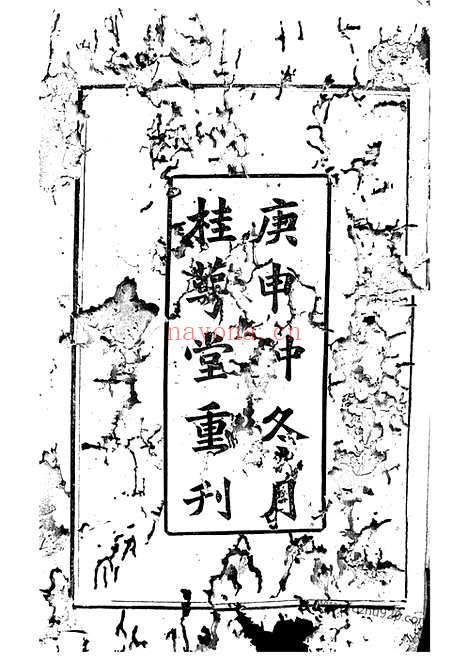 庚申仲冬月
桂萼堂重刊
nayona.cn